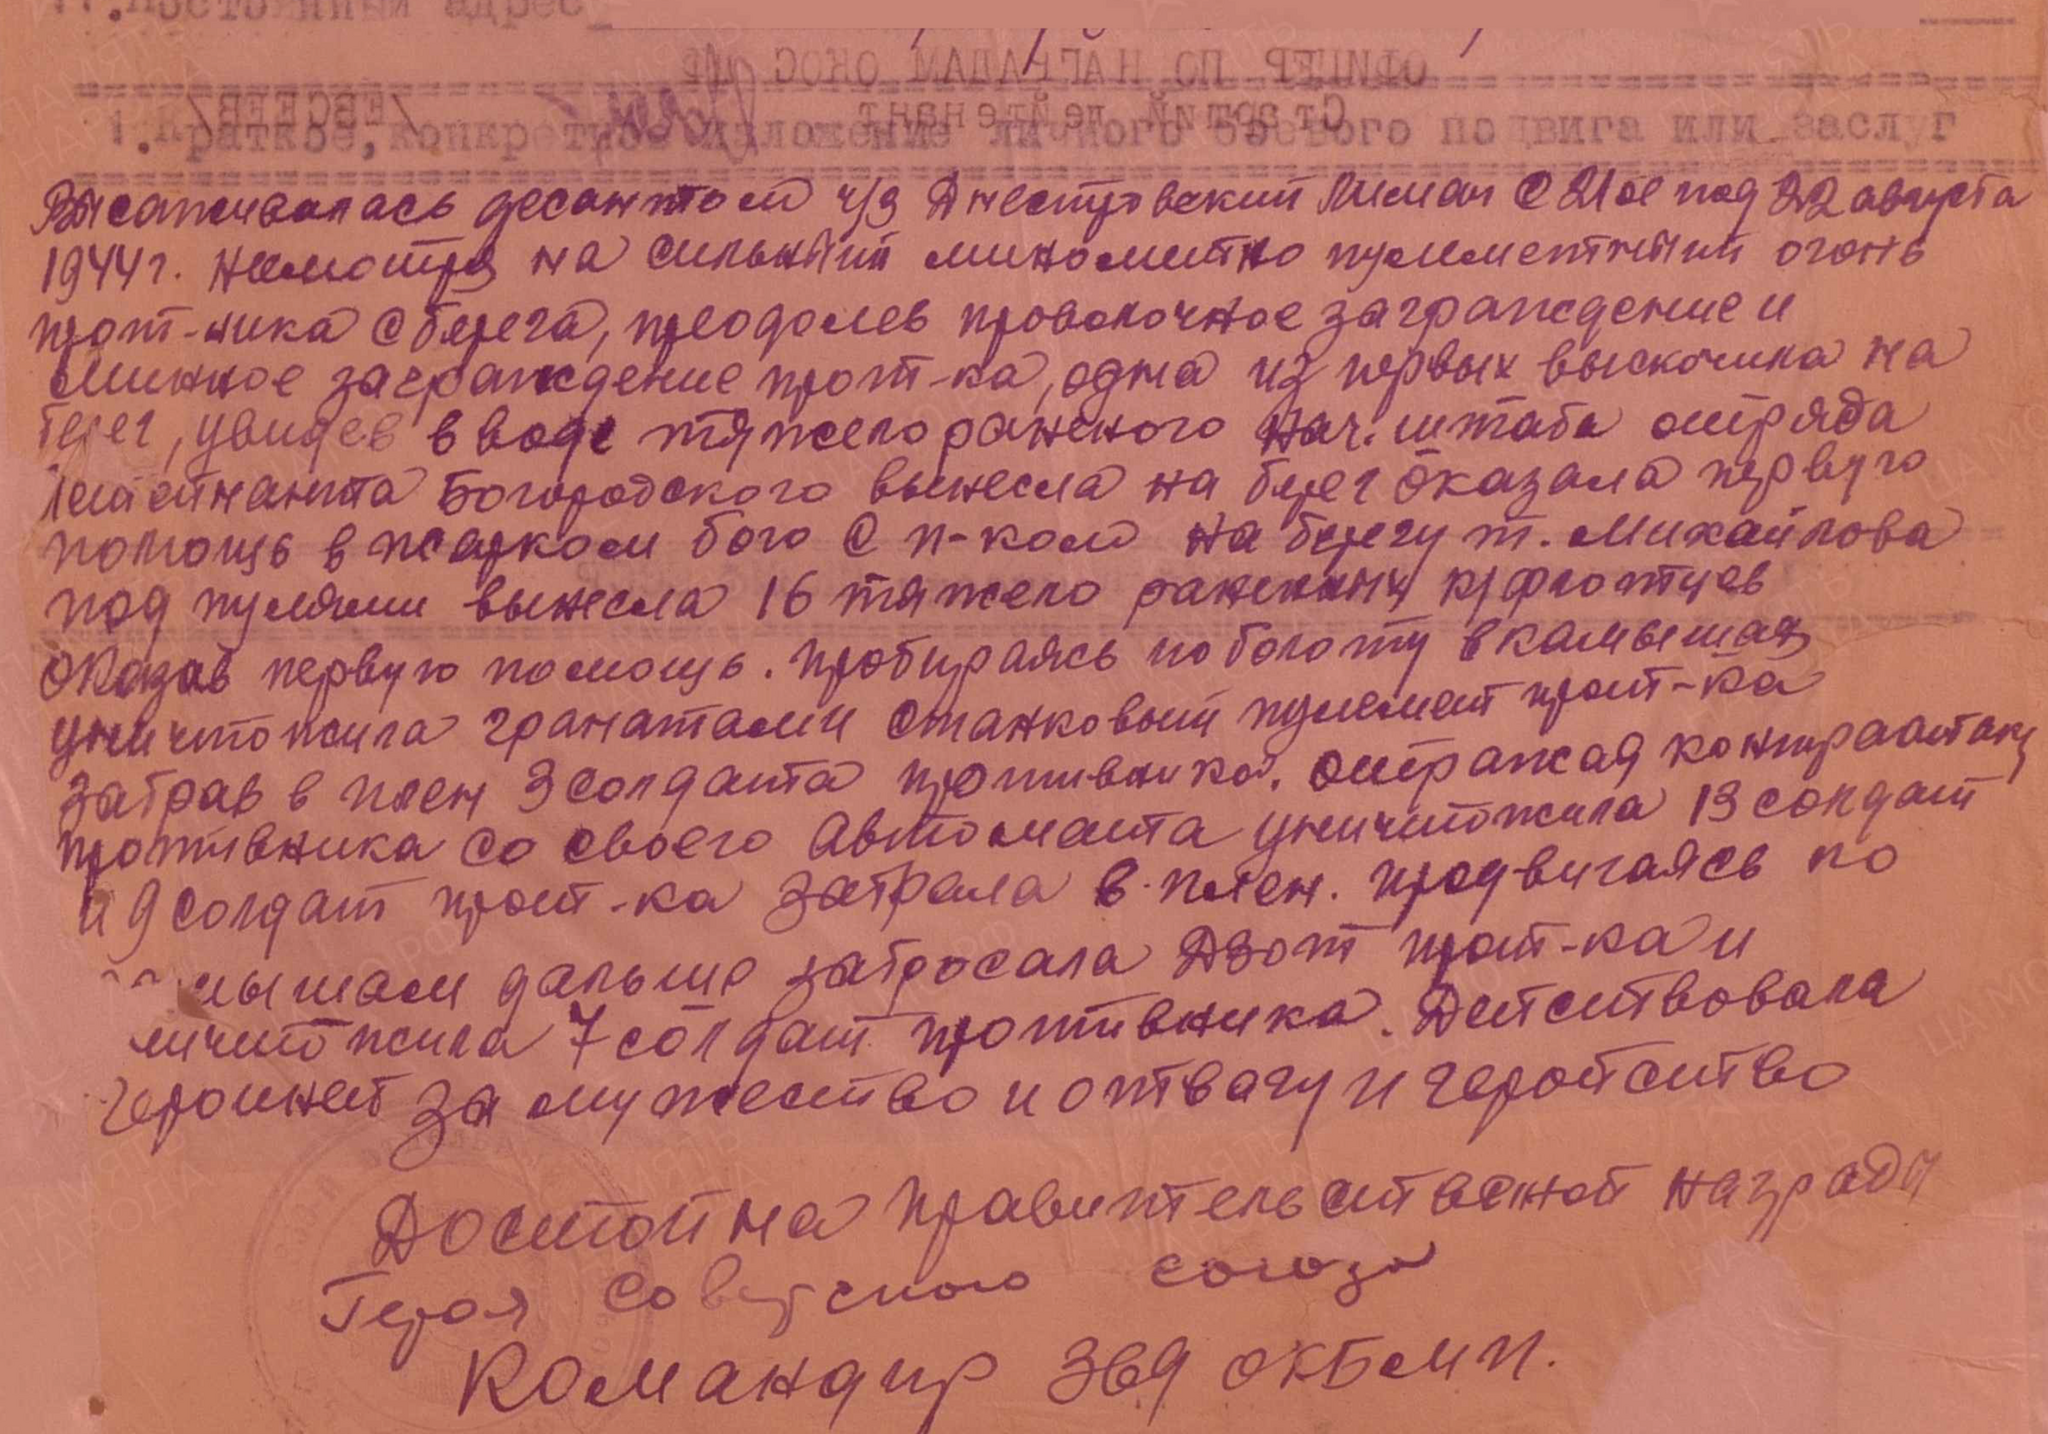 Постоянный адрес
ОФИЦЕР ПО НАГРАДАМ ОКОС
Старший лейтенант /ЕВСЕЕВ/
Краткое, конкретное изложение личного боевого подвига или заслуг
Высаживалась десантом ч/з Днестровский Лиман с 21ое под 22 августа
1944г. несмотря на сильный минометно пулеметный огонь
прот-ника с берега, преодолев проволочное заграждение и
минное заграждение прот-ка, одна из первых выскочила на
берег, увидев в воде тяжело раненого нач. штаба отряда
лейтенанта Богородского вынесла на берег оказала первую
помощь в жарком бою с п-ком на берегу т. Михайлова
под пулями вынесла 16 тяжело раненных к/флотцев
оказав первую помощь. пробираясь по болоту в камышах
уничтожила гранатами станковый пулемет прот-ка
забрав в плен 3 солдата противника. отражая контратаку
противника со своего автомата уничтожила 13 солдат
и 9 солдат прот-ка забрала в плен. продвигаясь по
мышам дальше забросала Дзот прот-ка и
ичтожила 7 солдат противника. Действовала
героиней за мужество и отвагу и геройство
Достойна правительственной награды
Героя Советского союза
Командир 369 ОКБМП.